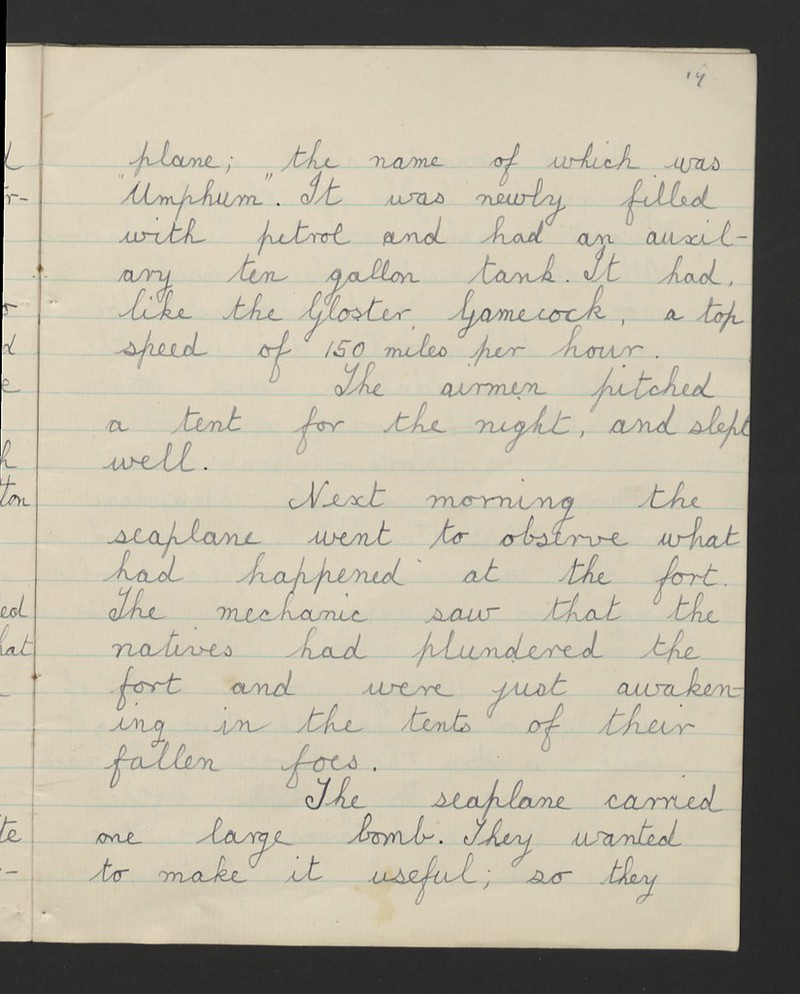 plane; the name of which was
"Umphum". It was newly filled
with petrol and had an auxil-
ary ten gallon tank. It had,
like the Gloster Gamecock, a top
speed of 150 miles per hour.
The airmen pitched
a tent for the night, and slept
well.
Next morning the
seaplane went to observe what
had happened at the fort.
The mechanic saw that the
natives had plundered the
fort and were just awaken-
ing in the tents of their
fallen foes.
The seaplane carried
one large bomb. They wanted
to make it useful; so they